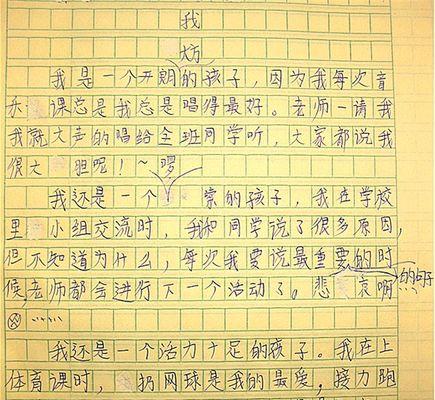 我
大方
我是一个开朗的孩子，因为我每次音
乐课总是我总是唱得最好。老师一请我
我就大声的唱给全班同学听，大家都说我
很大胆呢！~
啰
我还是一个索的孩子，我在学校
里小组交流时，我和同学说了很多原因，
但不知道为什么，每次我要说最重要的时
候，老师都会进行下一个活动了。悲哀啊
的句子
⊗……
我还是一个活力十足的孩子。我在上
体育课时，扔网球是我的最爱，接力跑